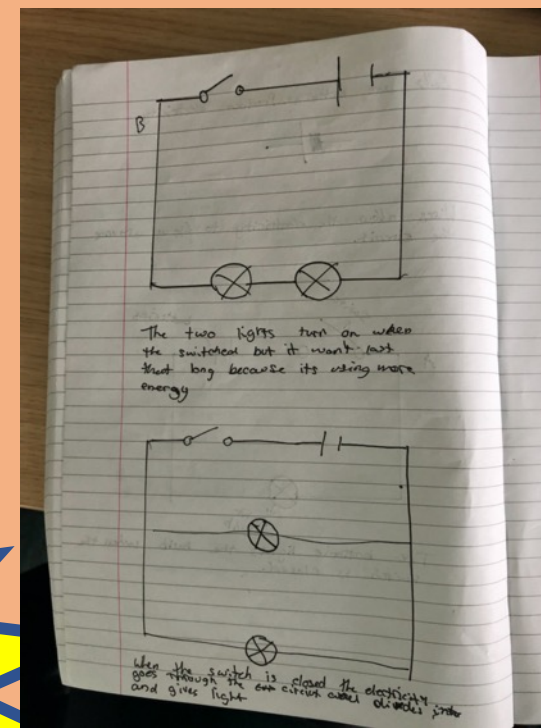 B
The two lights turn on when
the switched but it wont last
that long because its using more
energy
When the switch is closed the electricity
goes through the circuit and divides into
and gives light